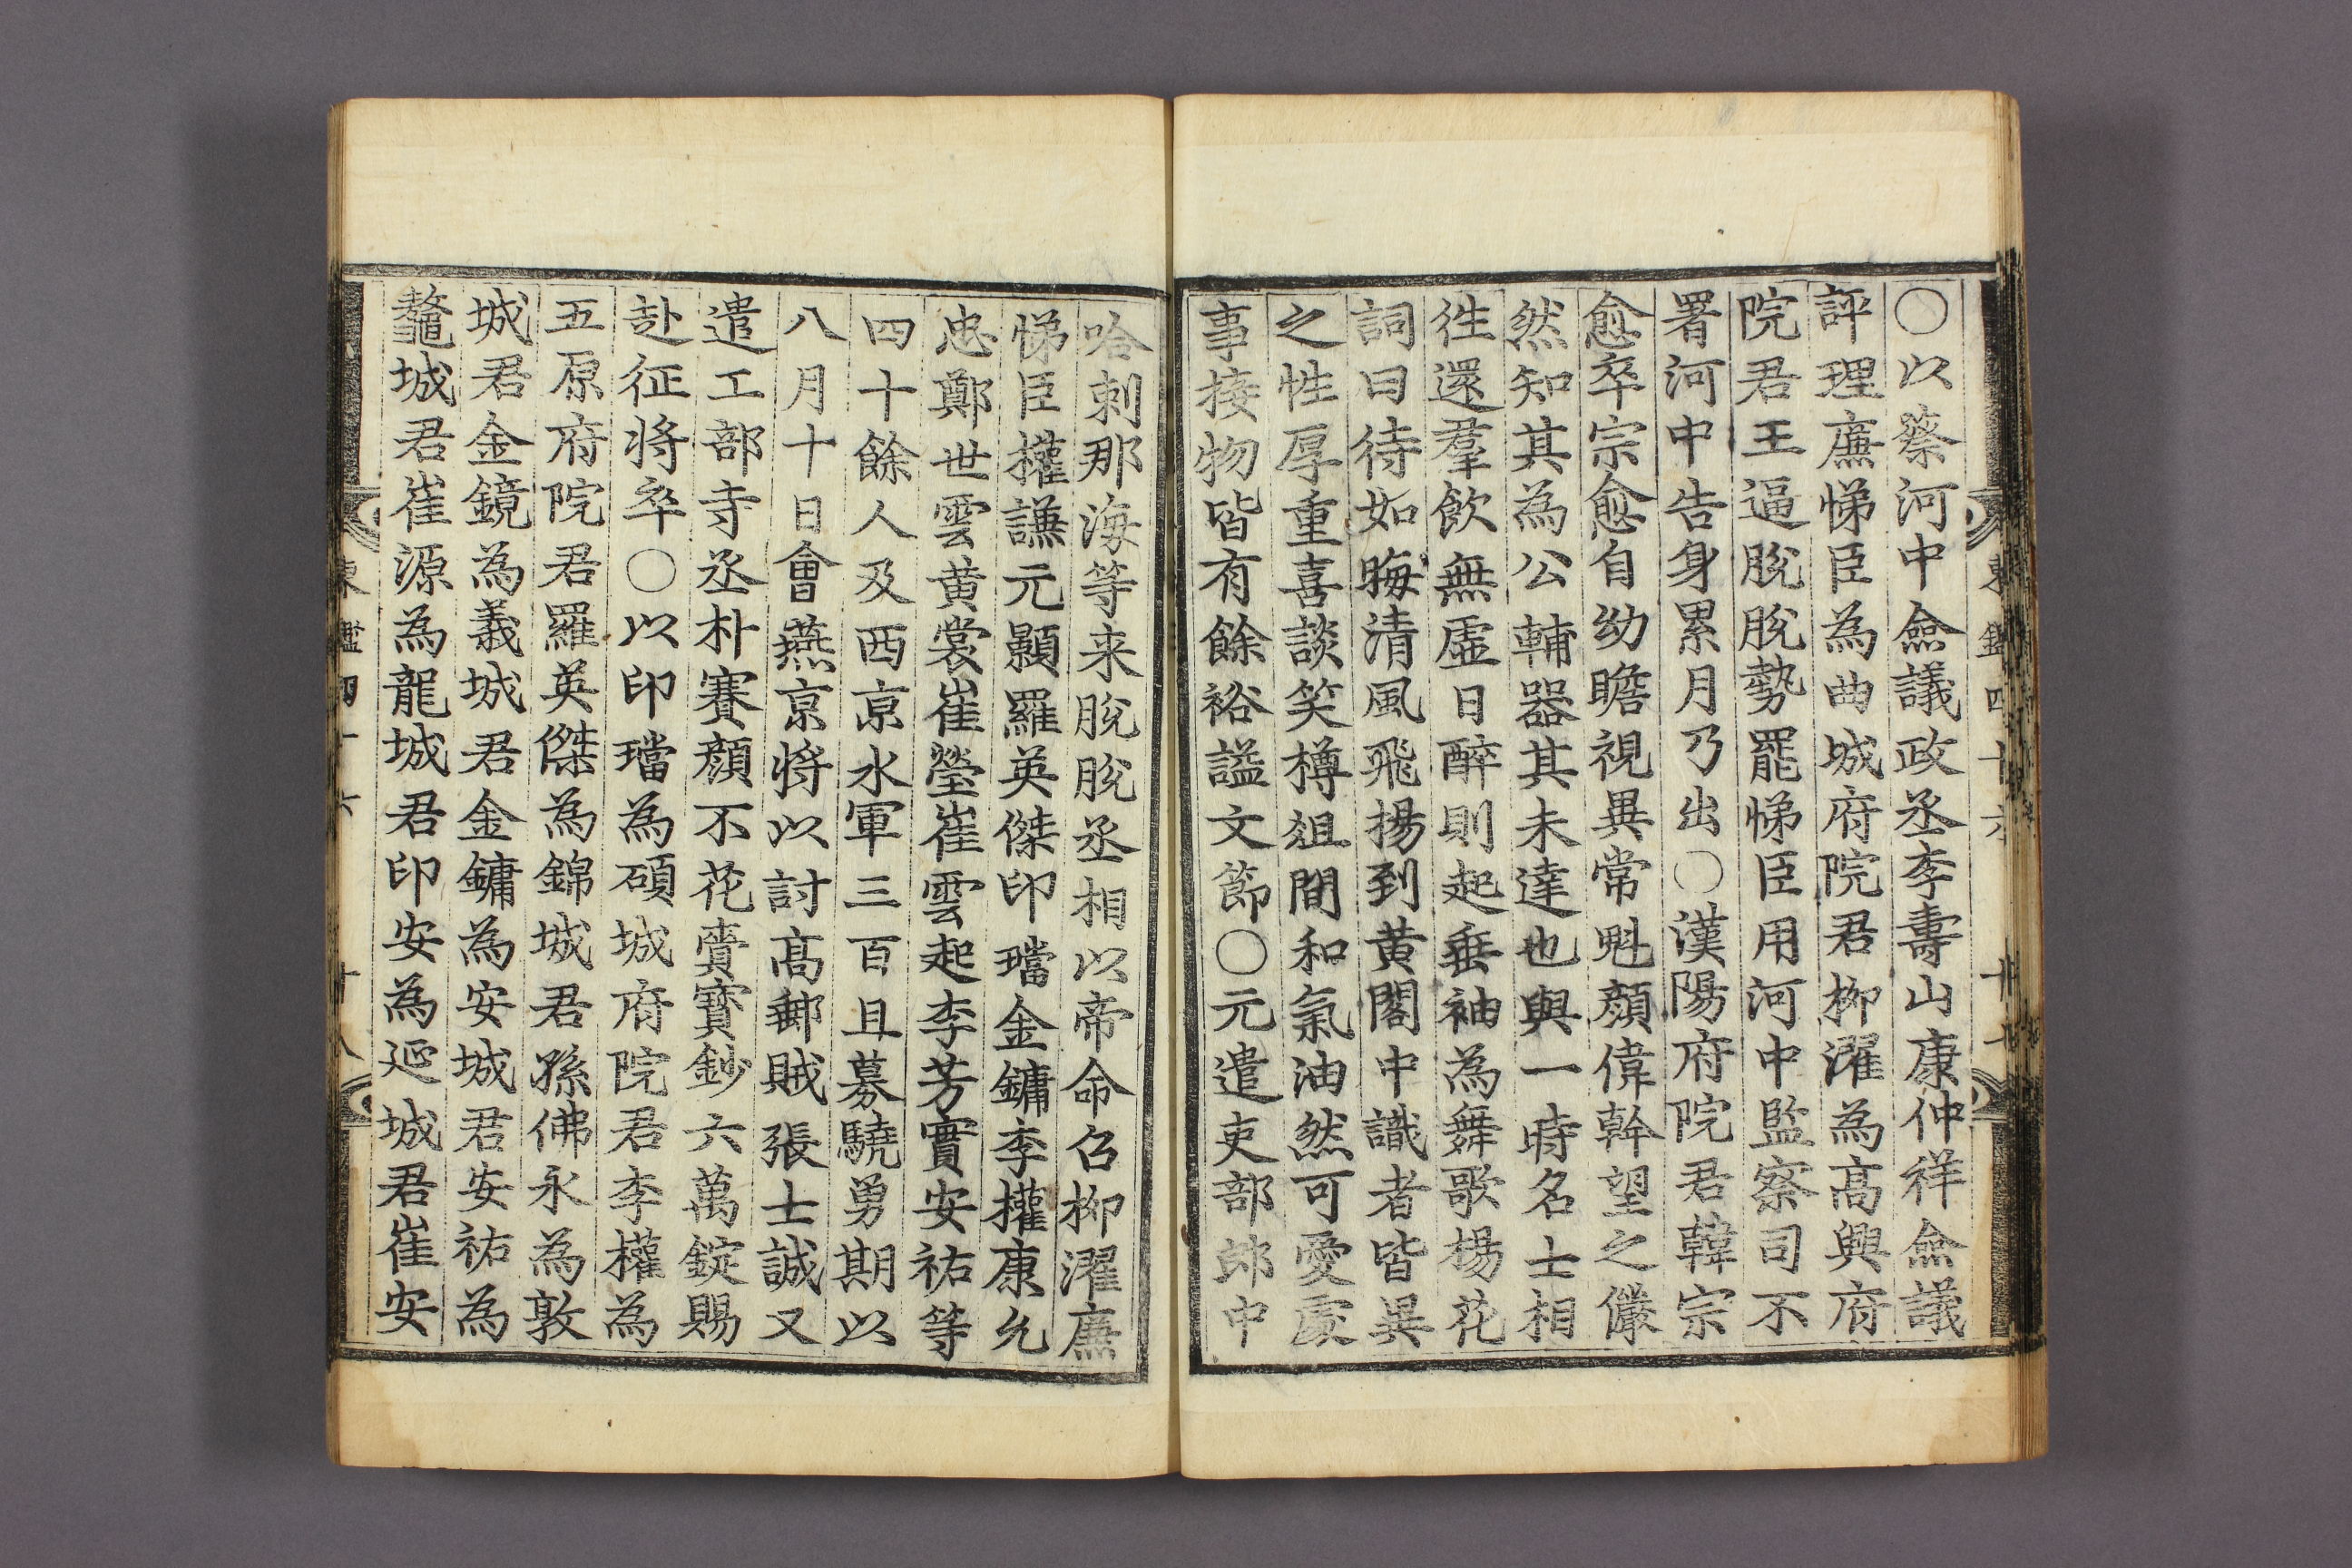 〇以蔡河中僉議政丞李壽山康仲祥僉議
評理廉悌臣為曲城府院君柳濯為高興府
院君王逼脫脫勢罷悌臣用河中監察司不
署河中告身累月乃出〇漢陽府院君韓宗
愈卒宗愈自幼瞻視異常魁顏偉幹望之儼
然知其為公輔器其未達也與一時名士相
徃還羣飮無虛日醉則起垂袖為舞歌楊花
詞曰待如晦清風飛揚到黃閣中識者皆異
之性厚重喜談笑樽俎間和氣油然可愛處
事接物皆有餘裕謚文節〇元遣吏部郎中
哈剌那海等来脫脫丞相以帝命召柳濯廉
悌臣權謙元顥羅英傑印璫金鏞李權康允
忠鄭世雲黃裳崔瑩崔雲起李芳實安祐等
四十餘人及西京水軍三百且募驍勇期以
八月十日會燕京將以討高郵賊張士誠又
遣工部寺丞朴賽顏不花賷寶鈔六萬錠賜
赴征將卒〇以印璫為碩城府院君李權為
五原府院君羅英傑為錦城君孫佛永為敦
城君金鏡為義城君金鏞為安城君安祐為
鼇城君崔源為龍城君印安為延城君崔安
東鑑四十六
十八
東鑑四十六
十七